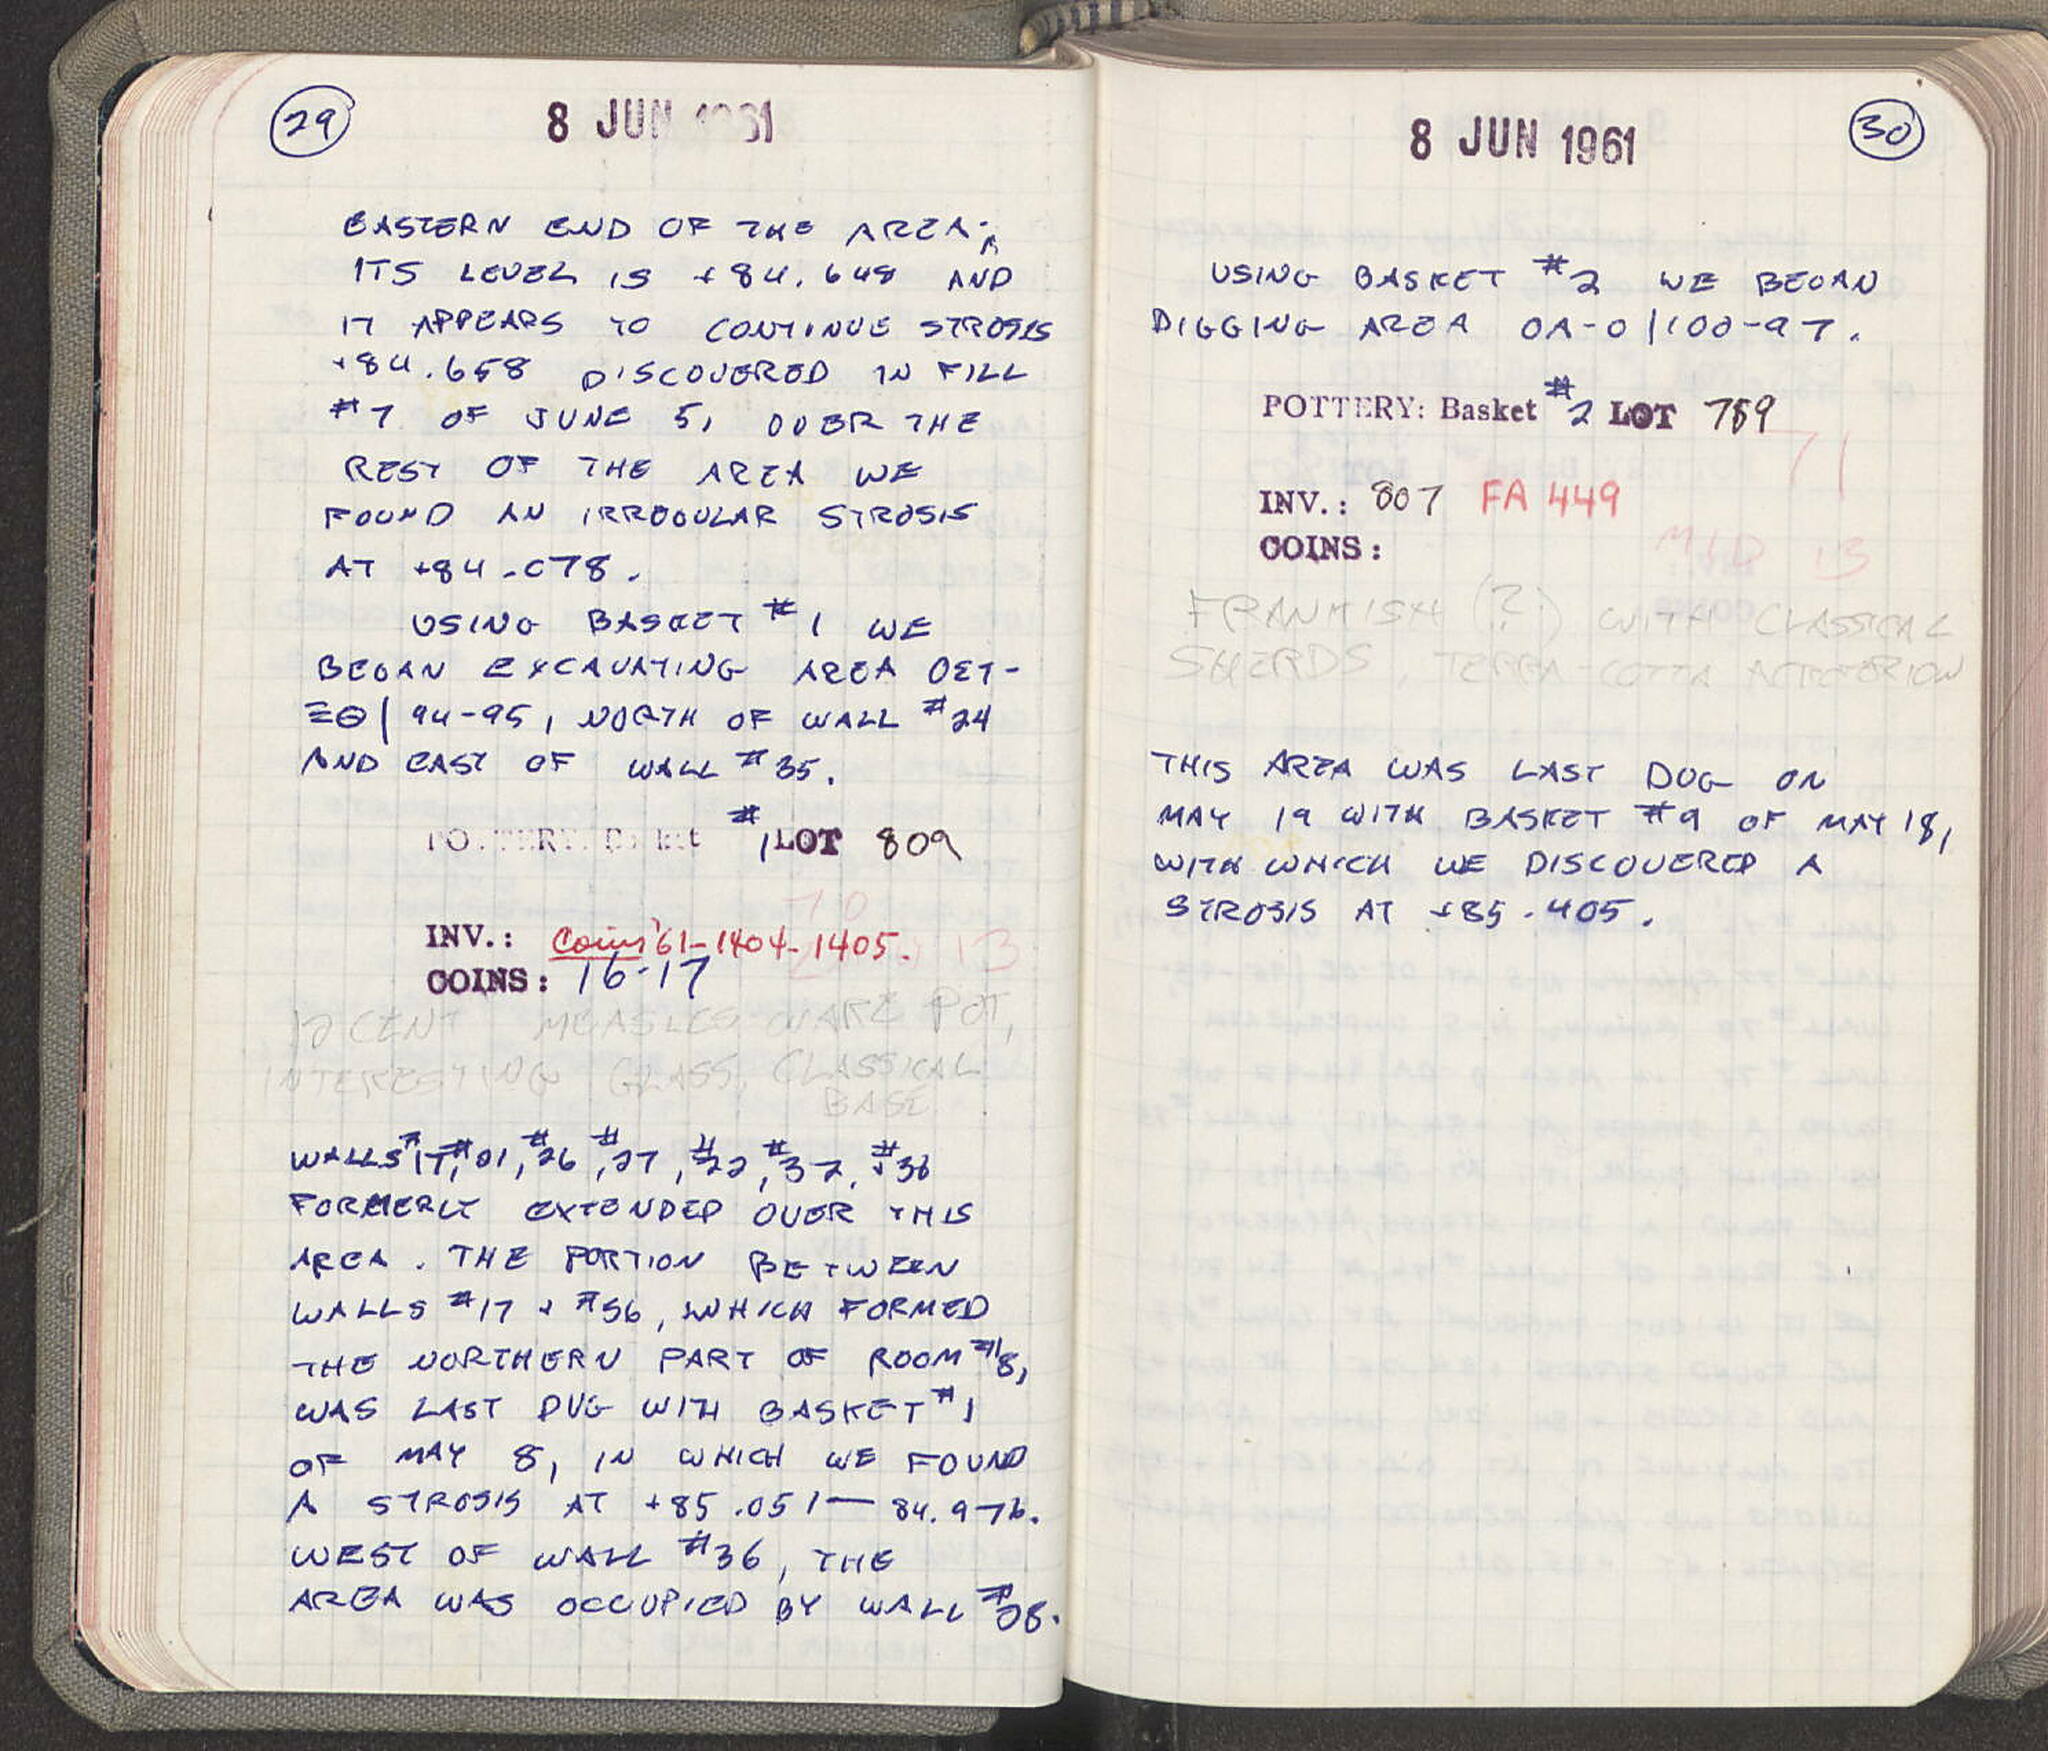 29
8 JUN 1961
EASTERN END OF THE AREA.
ITS LEVEL IS +84.648 AND
IT APPEARS TO CONTINUE STROSIS
+84.658 DISCOVERED IN FILL
#7 OF JUNE 5, OVER THE
REST OF THE AREA WE
FOUND AN IRREGULAR STROSIS
AT +84.078.
USING BASKET #1 WE
BEGAN EXCAVATING AREA
94-95, NORTH OF WALL #24
AND EAST OF WALL #35.
POTTERY: Basket #1 LOT 809
70
13
INV.: Coins '61-1404-1405.
COINS: 16-17
12 CENT MEASLES-WARE POT,
INTERESTING GLASS, CLASSICAL
BASE
WALLS #17, #21, #26, #27, #22, #32, + #36
FORMERLY EXTENDED OVER THIS
AREA. THE PORTION BETWEEN
WALLS #17 + #36, WHICH FORMED
THE NORTHERN PART OF ROOM #18,
WAS LAST DUG WITH BASKET #1
OF MAY 8, IN WHICH WE FOUND
A STROSIS AT +85.051 — 84.976.
WEST OF WALL #36, THE
AREA WAS OCCUPIED BY WALL #08.
30
8 JUN 1961
USING BASKET #2 WE BEGAN
DIGGING AREA OA-O|100-97.
POTTERY: Basket #2 LOT 759
71
INV.: 807 FA 449
COINS:
MID 13
FRANKISH (?) WITH CLASSICAL
SHERDS, TERRA COTTA ACROTERION
THIS AREA WAS LAST DUG ON
MAY 19 WITH BASKET #9 OF MAY 18,
WITH WHICH WE DISCOVERED A
STROSIS AT +85.405.